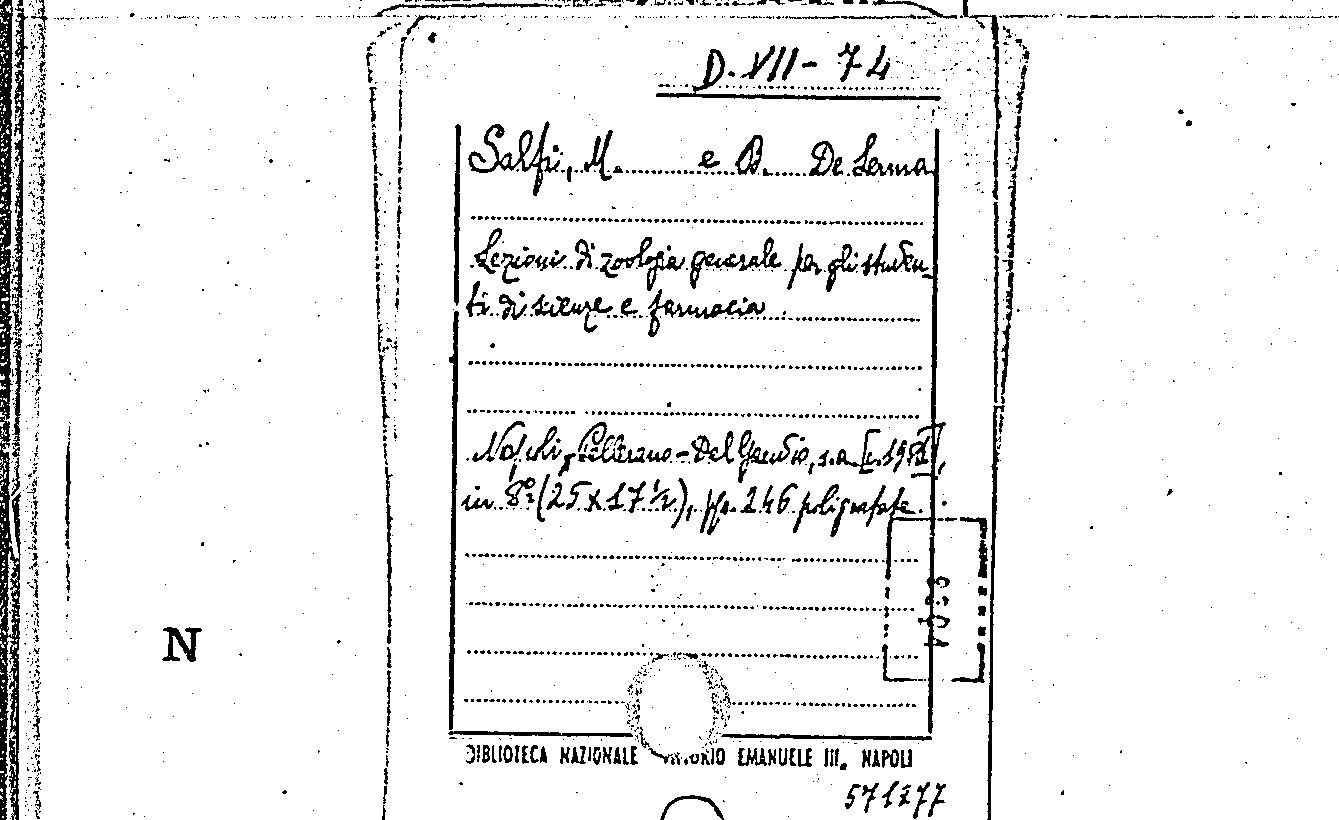 D. VII - 74
Salfi, M. e B. De Lerma
Lezioni di zoologia generale per gli studen-
ti di scienze e farmacia.
Napoli, Pellerano-Del Gaudio, s.a. [c.1951],
in 8º (25 x 17 ½), pp. 246 poligrafate.
N
BIBLIOTECA NAZIONALE VITTORIO EMANUELE III. NAPOLI